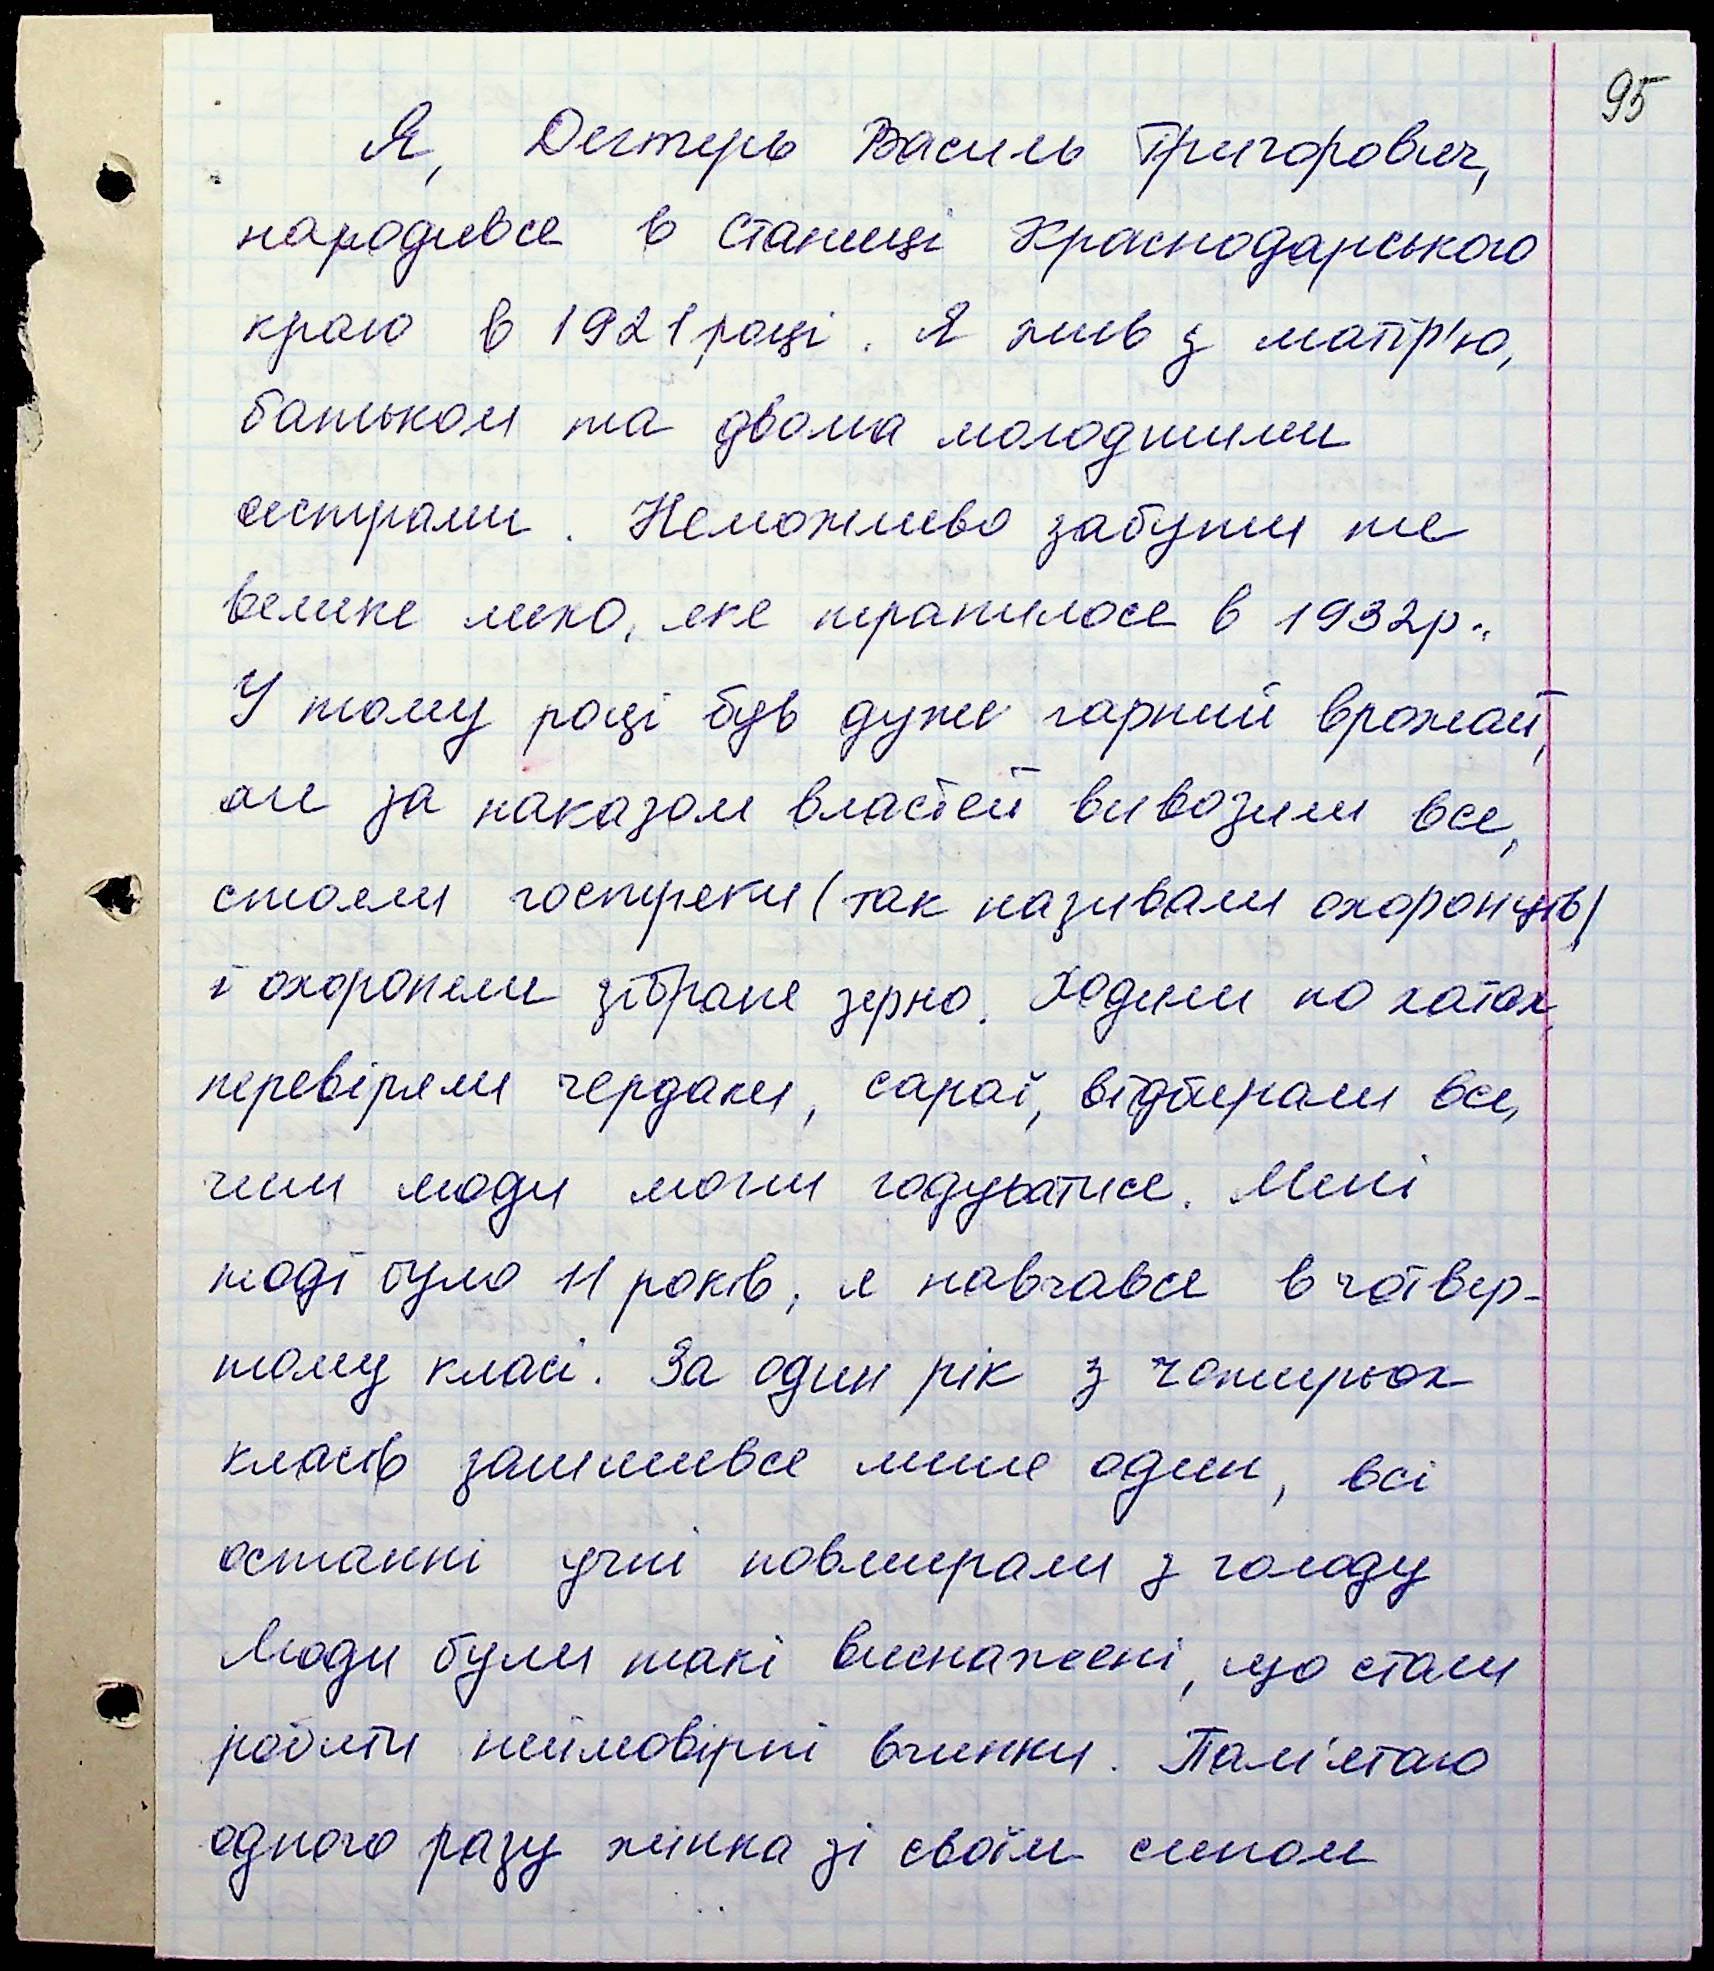 95
Я, Дегтерь Василь Григорович,
народився в станиці Краснодарського
краю в 1921 році. Я жив з матір'ю,
батьком та двома молодшими
сестрами. Неможливо забути те
велике лихо, яке трапилося в 1932р..
У тому році був дуже гарний врожай,
але за наказом властей вивозили все,
стояли госпуреки (так називали охоронців)
і охороняли зібране зерно. Ходили по хатах,
перевіряли чердаки, сараї, відбирали все,
чим люди могли годуватися. Мені
тоді було 11 років, я навчався в четвер-
тому класі. За один рік з чотирьох
класів залишився лише один, всі
останні учні повмирали з голоду
Люди були такі виснажені, що стали
робити неймовірні вчинки. Пам'ятаю
одного разу жінка зі своїм сином